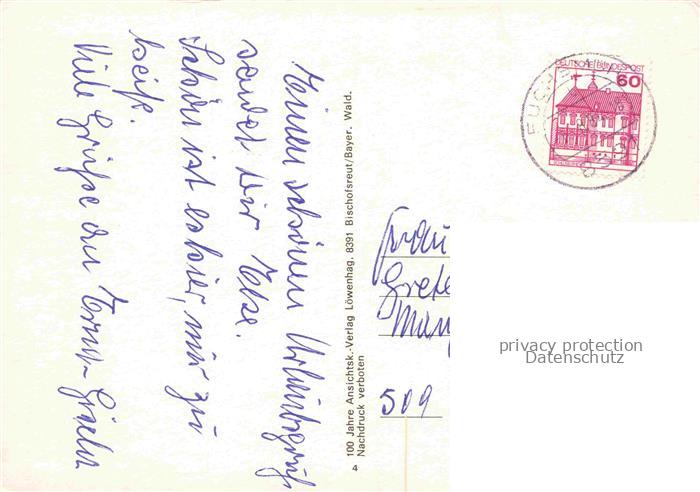 Einen schönen Urlaubsgruß
sendet Dir Elke.
Schön ist es hier, nur zu
heiß.
Viele Grüße an Ernst-Günter
100 Jahre Ansichtsk.-Verlag Löwenhag, 8391 Bischofsreut/Bayer. Wald.
Nachdruck verboten
4
DEUTSCHE BUNDESPOST
60
Frau
Grete
509
privacy protection
Datenschutz